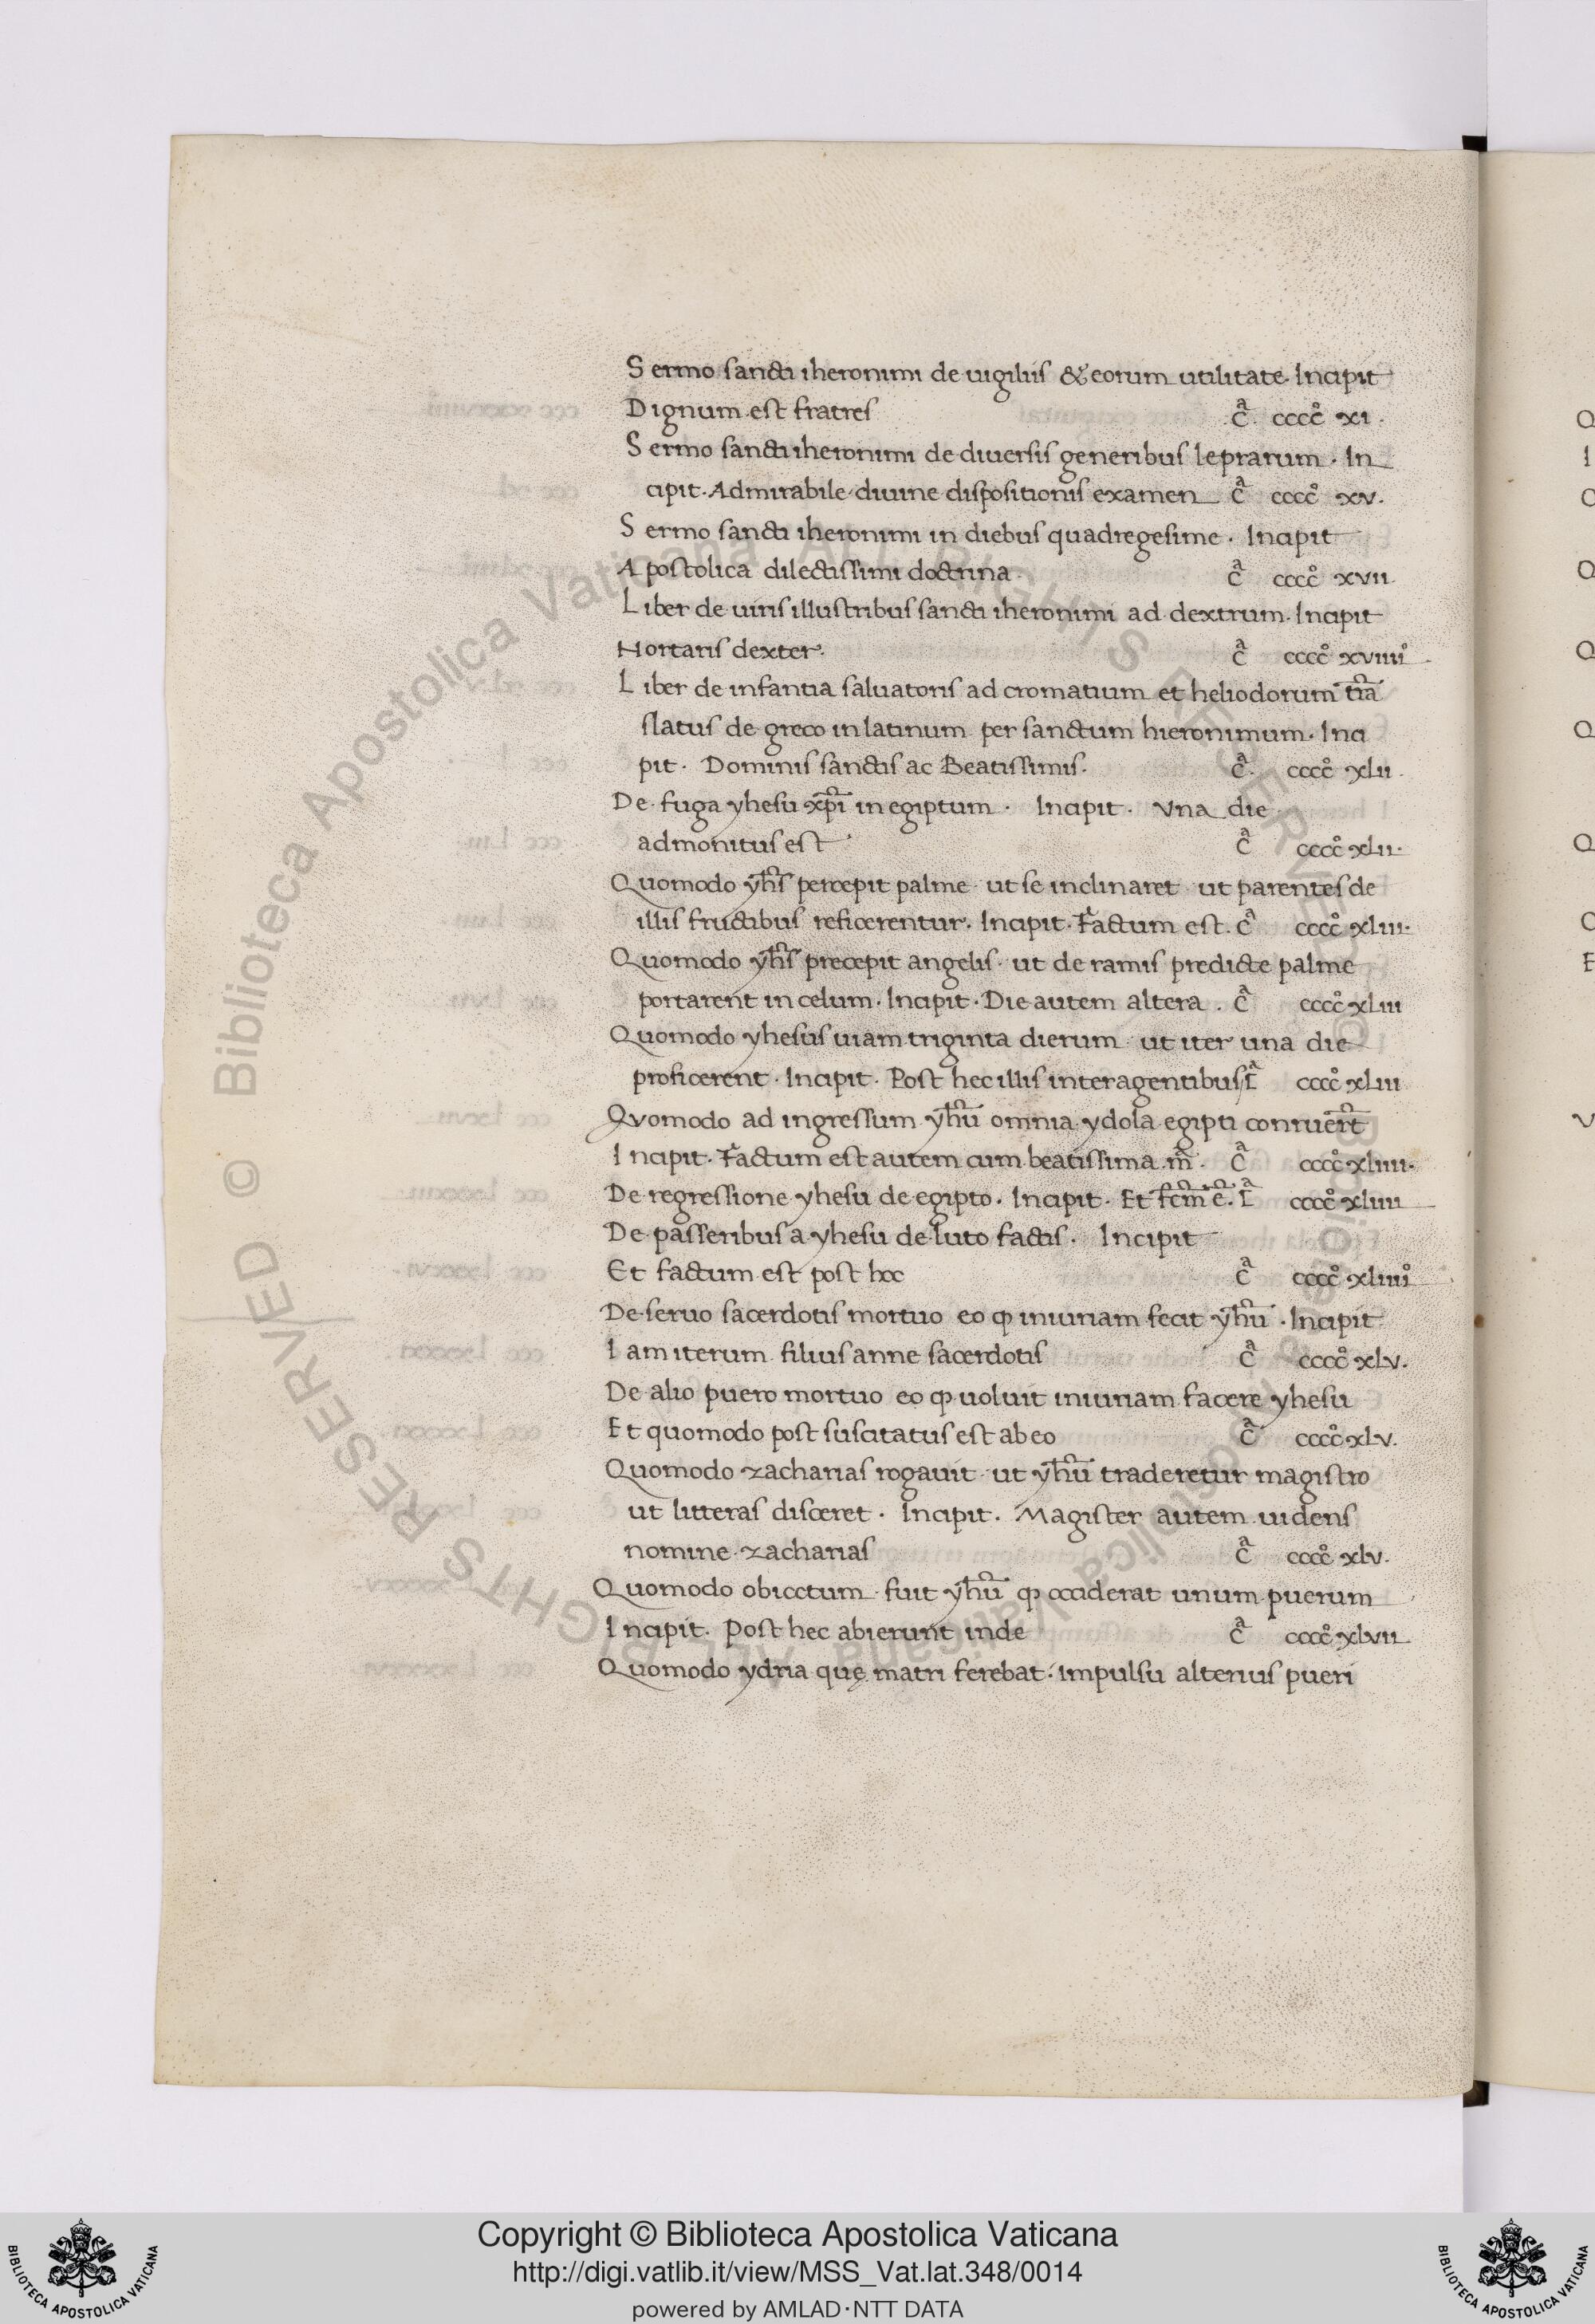 Sermo sancti iheronimi de uigiliis & eorum utilitate. Incipit
Dignum est fratres c̄ᵃ. cccc̊ xi.
Sermo sancti iheronimi de diuersis generibus leprarum. In
cipit. Admirabile diuine dispositionis examen c̄ᵃ cccc̊ xv.
Sermo sancti iheronimi in diebus quadregesime. Incipit
Apostolica dilectissimi doctrina. c̄ᵃ cccc̊ xvii.
Liber de uiris illustribus sancti iheronimi ad dextrum. Incipit
Hortaris dexter. c̄ᵃ cccc̊ xviiii̊
Liber de infantia saluatoris ad cromatium et heliodorum tr̄a
slatus de greco in latinum per sanctum hieronimum. Inci
pit. Dominis sanctis ac Beatissimis. c̄ᵃ. cccc̊ xlii.
De fuga yhesu xp̄i in egiptum. Incipit. Vna die
admonitus est c̄ᵃ cccc̊ xlii.
Quomodo yh̄s percepit palme ut se inclinaret ut parentes de
illis fructibus reficerentur. Incipit. Factum est. c̄ᵃ cccc̊ xliii.
Quomodo yh̄s precepit angelis. ut de ramis predicte palme
portarent in celum. Incipit. Die autem altera. c̄ᵃ cccc̊ xliii
Quomodo yhesus uiam triginta dierum ut iter una die
proficerent. Incipit. Post hec illis interagentibus c̄ᵃ cccc̊ xliii
Qvomodo ad ingressum yh̄u omnia ydola egipti conruer̄t
Incipit. Factum est autem cum beatissima m̄. c̄ᵃ cccc̊ xliiii.
De regressione yhesu de egipto. Incipit. Et fcm̄ ē. c̄ᵃ cccc̊ xliiii
De passeribus a yhesu de luto factis. Incipit
Et factum est post hoc c̄ᵃ cccc̊ xliiii̊
De seruo sacerdotis mortuo eo ꝙ iniuriam fecit yh̄u. Incipit
Iam iterum filius anne sacerdotis c̄ᵃ cccc̊ xlv.
De alio puero mortuo eo ꝙ uoluit iniuriam facere yhesu
Et quomodo post suscitatus est ab eo c̄ᵃ cccc̊ xlv.
Quomodo zacharias rogauit ut yh̄u traderetur magistro
ut litteras disceret. Incipit. Magister autem uidens
nomine zacharias c̄ᵃ cccc̊ xlv.
Quomodo obiectum fuit yh̄u ꝙ occiderat unum puerum
Incipit. Post hec abierunt inde c̄ᵃ cccc̊ xlvii
Quomodo ydria quę matri ferebat. impulsu alterius pueri
Copyright © Biblioteca Apostolica Vaticana
http://digi.vatlib.it/view/MSS_Vat.lat.348/0014
powered by AMLAD·NTT DATA